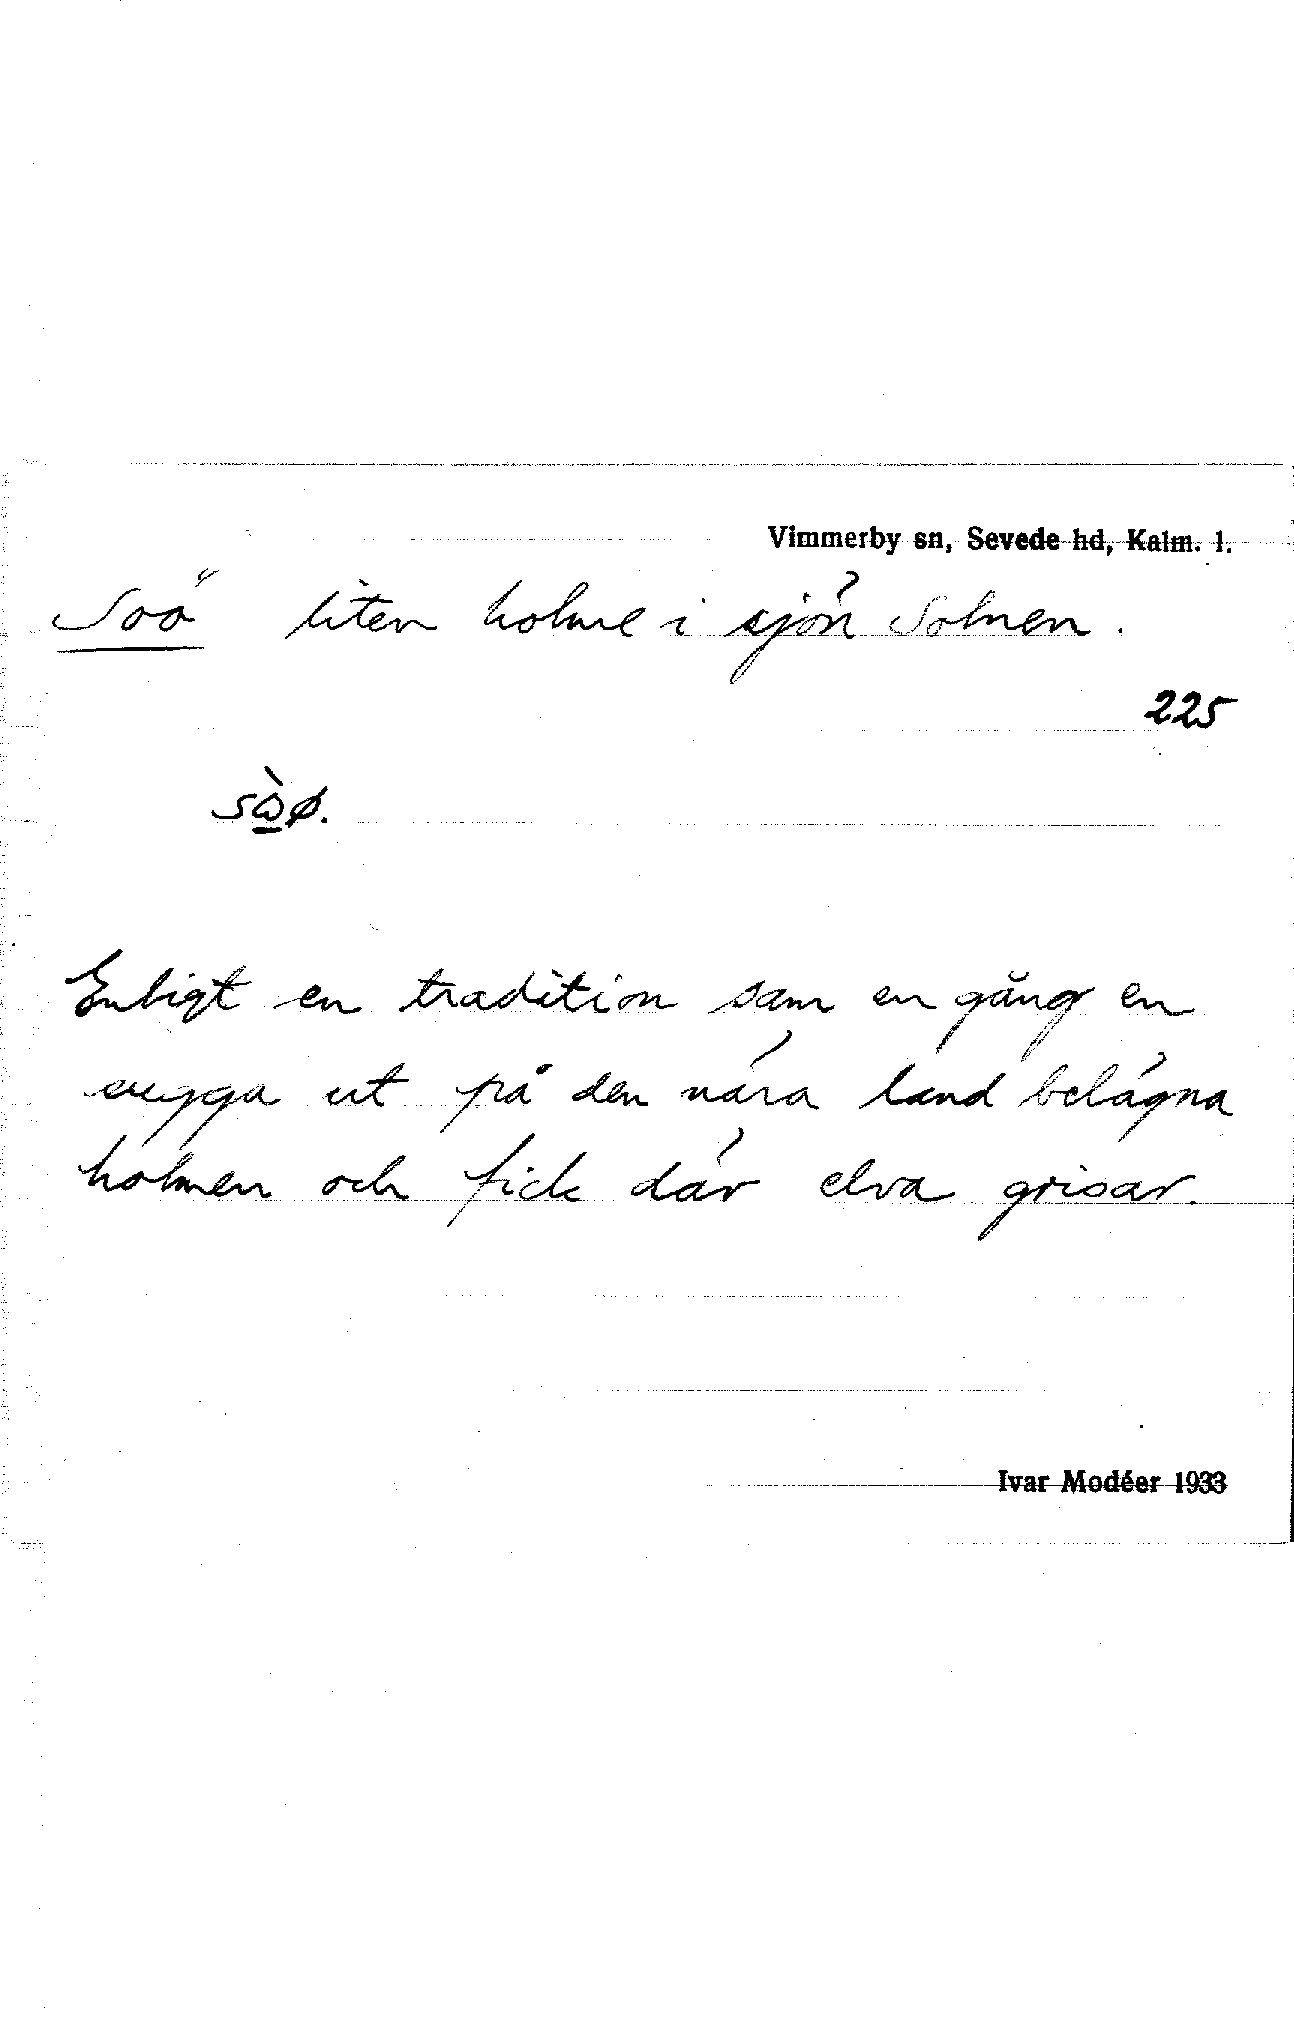 Vimmerby sn, Sevede hd, Kalm. l.
Soö liten holme i sjön Solnen.
225
Enligt en tradition sam en gång en
sugga ut på den nära land belägna
holmen och fick där elva grisar.
Ivar Modéer 1933